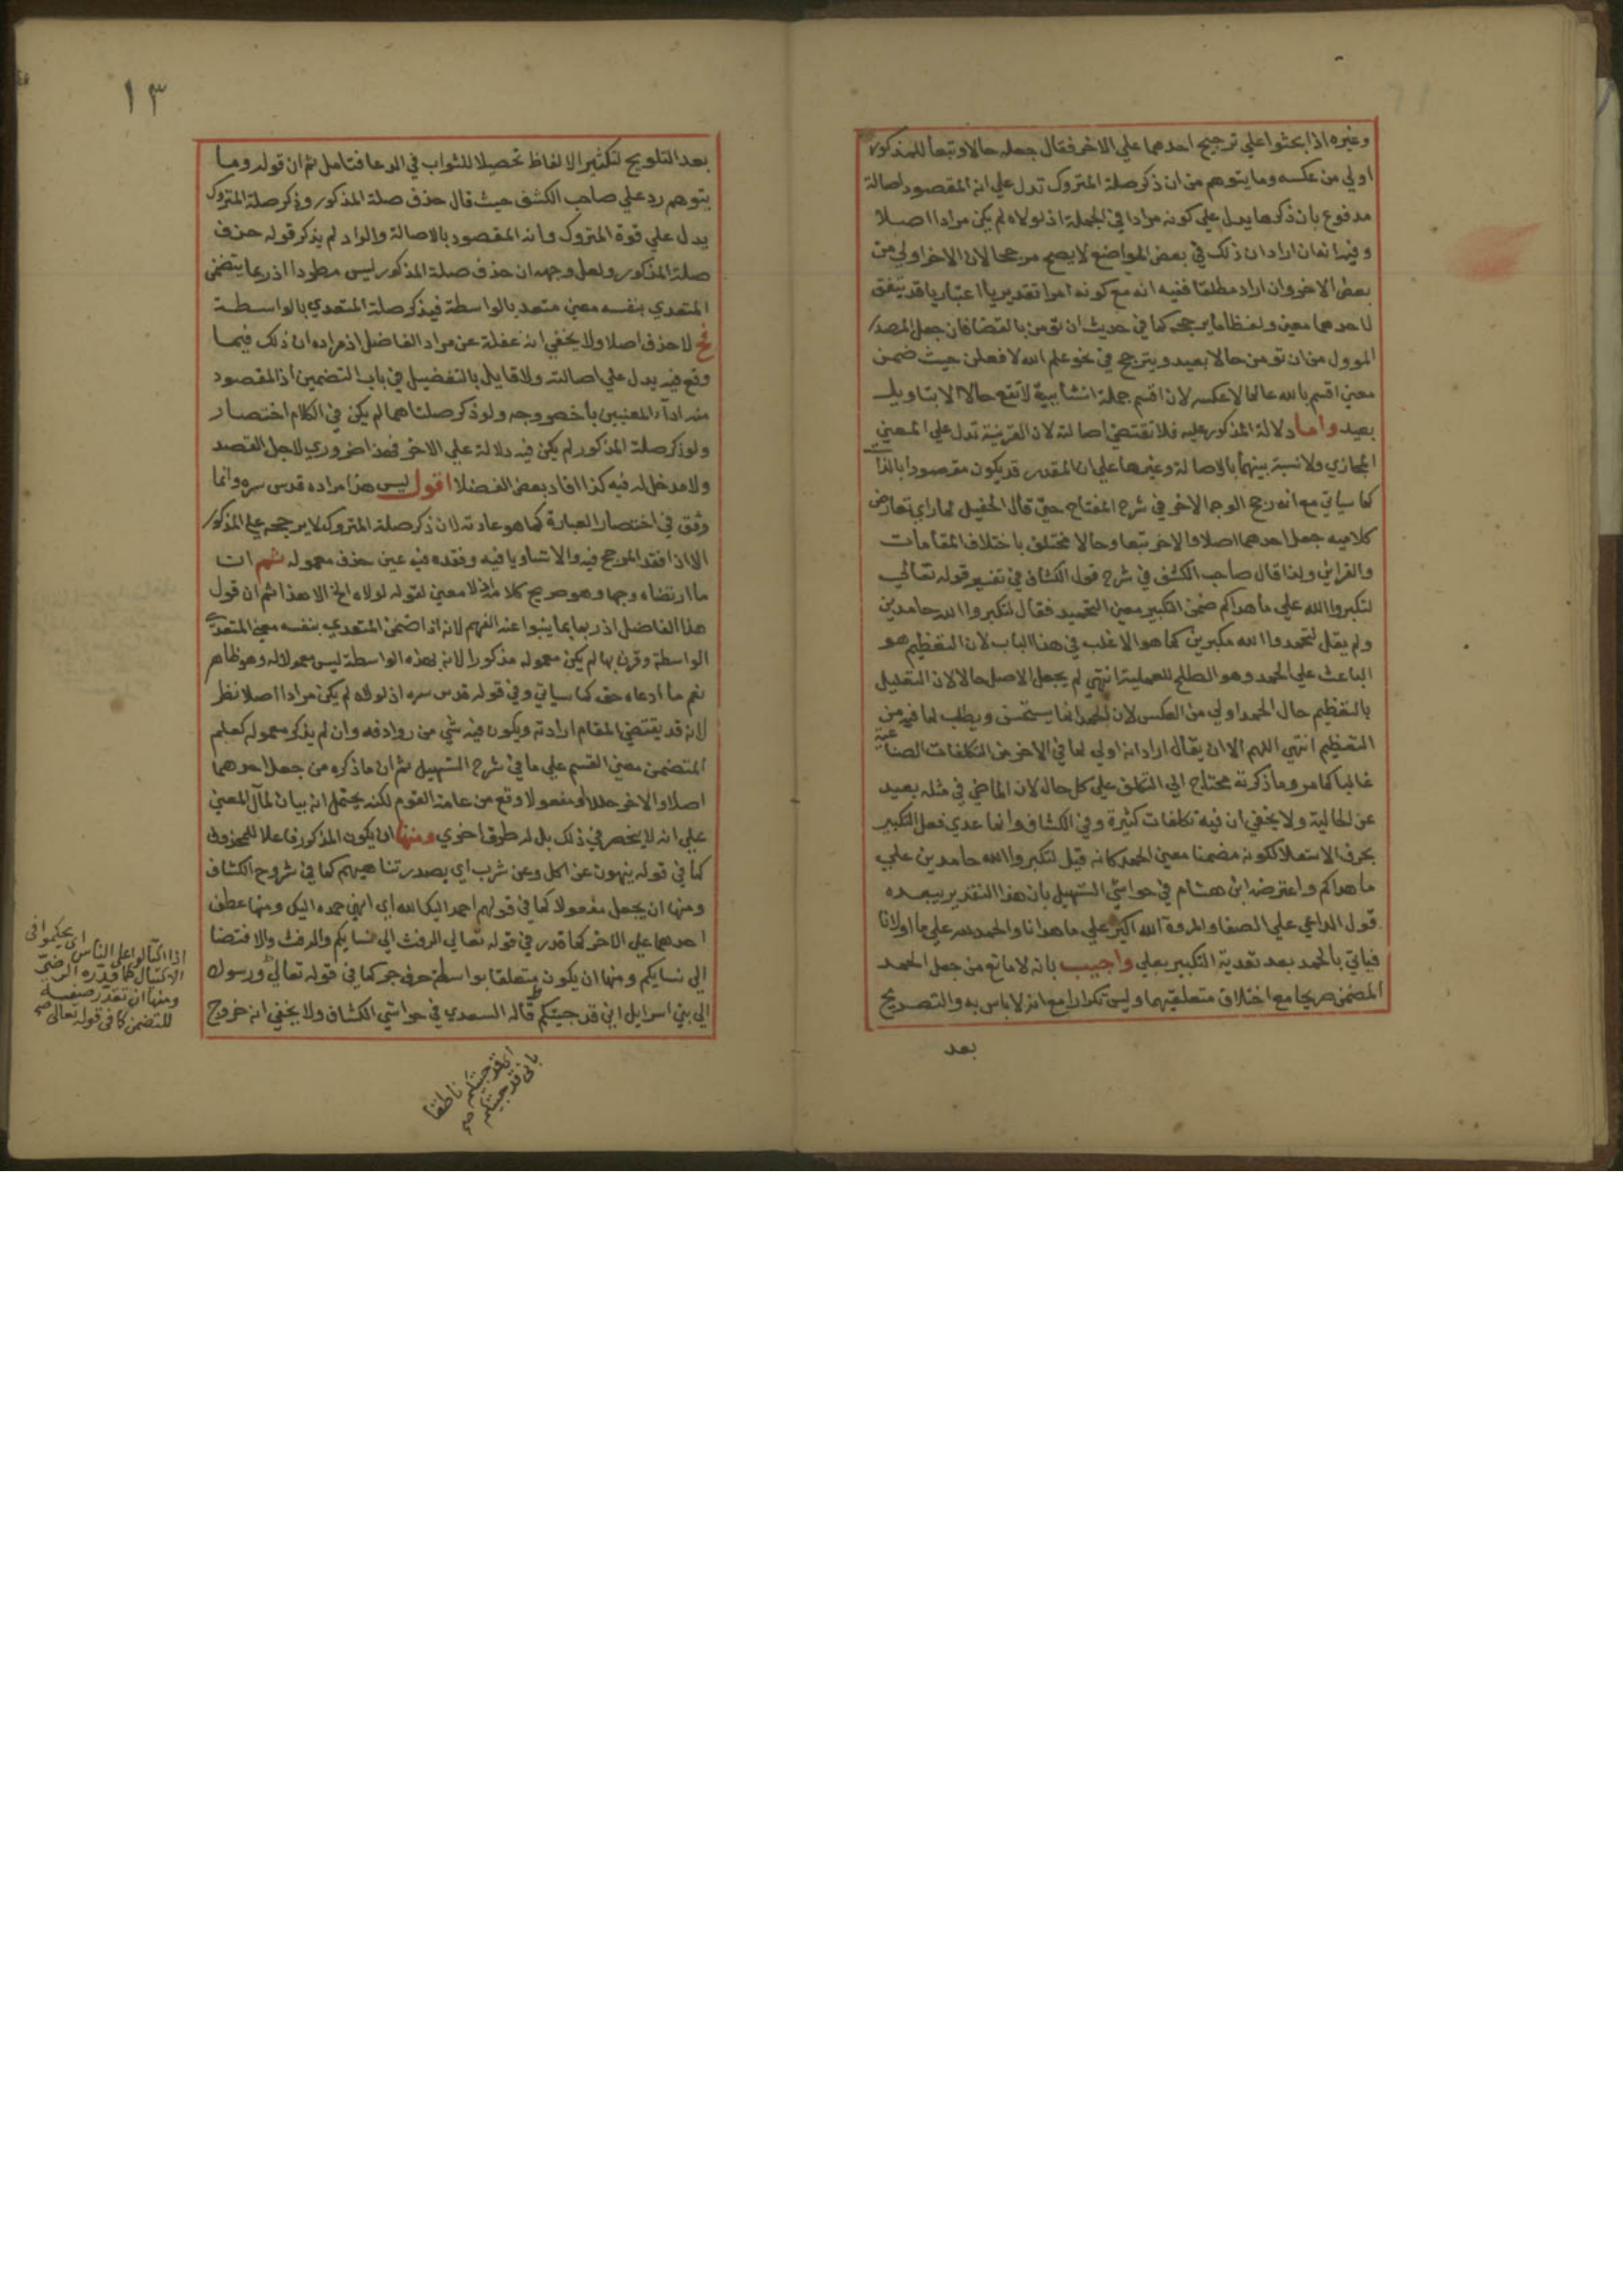 وغيره اذا بحثوا علي ترجيح احدهما علي الاخر فقال جعله حالا وتبعا للمذكور
اولي من عكسه وما يتوهم من ان ذكر صلة المتروك تدل علي انه المقصود اصالة
مدفوع بان ذكرها يدل علي كونه مرادا في الجملة اذ لولاه لم يكن مرادا اصلا
وفيه انه ان اراد ان ذلك في بعض المواضع لا يصح مرجحا لان الاخر اولي من
بعض الاخر وان اراد مطلقا ففيه انه مع كونه امرا تقديريا اعتباريا قد يتفق
لاحدهما معين ولفظا ما يرجحه كما في حديث ان تؤمن بالقضا فان جعل المصدر
الموول من ان تومن حالا بعيد ويترجح في نحو علم الله لافعلن حيث ضمن
معني اقسم بالله عالما لا عكسه لان اقسم جملة انشاييية لا تقع حالا الا بتاويل
بعيد واما دلالة المذكور عليه فلا تقتضي اصالته لان القرينة تدل علي المعني
المجازي ولا نسبة بينهما بالاصالة وغيرها علي ان المقدر قد يكون مقصودا بالذات
كما سياتي مع انه رجح الوجه الاخر في شرح المفتاح حتي قال الحفيد لما راي تعارض
كلاميه جعل احدهما اصلا والاخر تبعا وحالا مختلف باختلاف المقامات
والقراين ولذا قال صاحب الكشف في شرح قول الكشاف في تفسير قوله تعالي
لتكبروا الله علي ما هداكم ضمن التكبير معني التحميد فقال لتكبروا الله حامدين
ولم يقل لتحمدوا الله مكبرين كما هو الاغلب في هذا الباب لان التعظيم هو
الباعث علي الحمد وهو الصالح للعملية انتهي لم يجعل الاصل حالا لان التعليل
بالتعظيم حال الحمد اولي من العكس لان الحمد انما يستحسن ويطلب لما فيه من
التعظيم انتهي اللهم الا ان يقال اراد انه اولي لما في الاخر من التكلفات الصناعية
غالبا كما مر وما ذكرته محتاج الي التكلف علي كل حال لان الماضي في مثله بعيد
عن الحالية ولا يخفي ان فيه تكلفات كثيرة وفي الكشاف وانما عدي فعل التكبير
بحرف الاستعلا لكونه مضمنا معني الحمد كانه قيل لتكبروا الله حامدين علي
ما هداكم واعترضه ابن هشام في حواشي التسهيل بان هذا التقدير يبعده
قول الداعي علي الصفا والمروة الله اكبر علي ما هدانا والحمد لله علي ما اولانا
فياتي بالحمد بعد تعدية التكبير بعلي واجيب بانه لا مانع من جعل الحمد
المضمن صريحا مع اختلاف متعلقيهما وليس تكرارا مع انه لا باس به والتصريح
بعد
١٣
بعد التلويح لتكثير الالفاظ تحصيلا للثواب في الدعا فتامل ثم ان قوله وما
يتوهم رد علي صاحب الكشف حيث قال حذف صلة المذكور وذكر صلة المتروك
يدل علي قوة المتروك وانه المقصود بالاصالة والراد لم يذكر قوله حذف
صلة المذكور ولعل وجهه ان حذف صلة المذكور ليس مطردا اذ ربما يتضمن
المتعدي بنفسه معني متعد بالواسطة فيذكر صلة المتعدي بالواسطة
فح لا حذف اصلا ولا يخفي انه غفلة عن مراد الفاضل اذ مراده ان ذلك فيما
وقع فيه يدل علي اصالته ولا قايل بالتفضيل في باب التضمين اذ المقصود
منه اداء المعنيين باخصر وجه ولو ذكر صلتاهما لم يكن في الكلام اختصار
ولو ذكر صلة المذكور لم يكن فيه دلالة علي الاخر فهذا ضروري لاجل القصد
ولا مدخل له فيه كذا افاد بعض الفضلا اقول ليس هذا مراده قدس سره وانما
وثق في اختصار العبارة كما هو عادته لان ذكر صلة المتروك لا يرجحه علي المذكور
الا اذا فقد المرجح فيه والا تساويا فيه وفقده فيه عين حذف معموله ثم ان
ما ارتضاه وجها وهو صريح كلامه اذ لا معني لقوله لولاه الخ الا هذا ثم ان قول
هذا الفاضل اذ ربما بما ينبوا عنه الفهم لانه اذا ضمن المتعدي بنفسه معني المتعدي
الواسطة وقرن بها لم يكن معموله مذكورا لانه بهذه الواسطة ليس معمولا له وهو ظاهر
نعم ما ادعاه حق كما سياتي وفي قوله قدس سره اذ لولاه لم يكن مرادا اصلا نظر
لانه قد يقتضي المقام ارادته ويكون فيه شي من روادفه وان لم يذكر معموله كعلم
المتضمن معني القسم علي ما في شرح التسهيل ثم ان ما ذكره من جعل احدهما
اصلا والاخر حالا او مفعولا وقع من عامة القوم لكنه يحتمل انه بيان لمآل المعني
علي انه لا ينحصر في ذلك بل له طرق اخري ومنها ان يكون المذكور فاعلا للمحذوف
كما في قوله ينهون عن اكل وعن شرب اي يصدر تناهيهم كما في شروح الكشاف
ومنها ان يجعل مفعولا كما في قولهم احمد اليك الله اي انهي حمده اليك ومنها عطف
احدهما علي الاخر كما قدر في قوله تعالي الرفث الي نسايكم والرفث والافضا
الي نسايكم ومنها ان يكون متعلقا بواسطة حرف جر كما في قوله تعالي ورسولا
الي بني اسرايل اني قد جيتكم قاله السعدي في حواشي الكشاف ولا يخفي انه خروج
اي يحكموا في
اذا اكتالوا علي الناس
الاكتيال كما قدره الرضي
ومنها ان تقدر صفة
للتضمن كما في قوله تعالي صح
اني قد جيتكم ناطقا
باني قد جيتكم صح